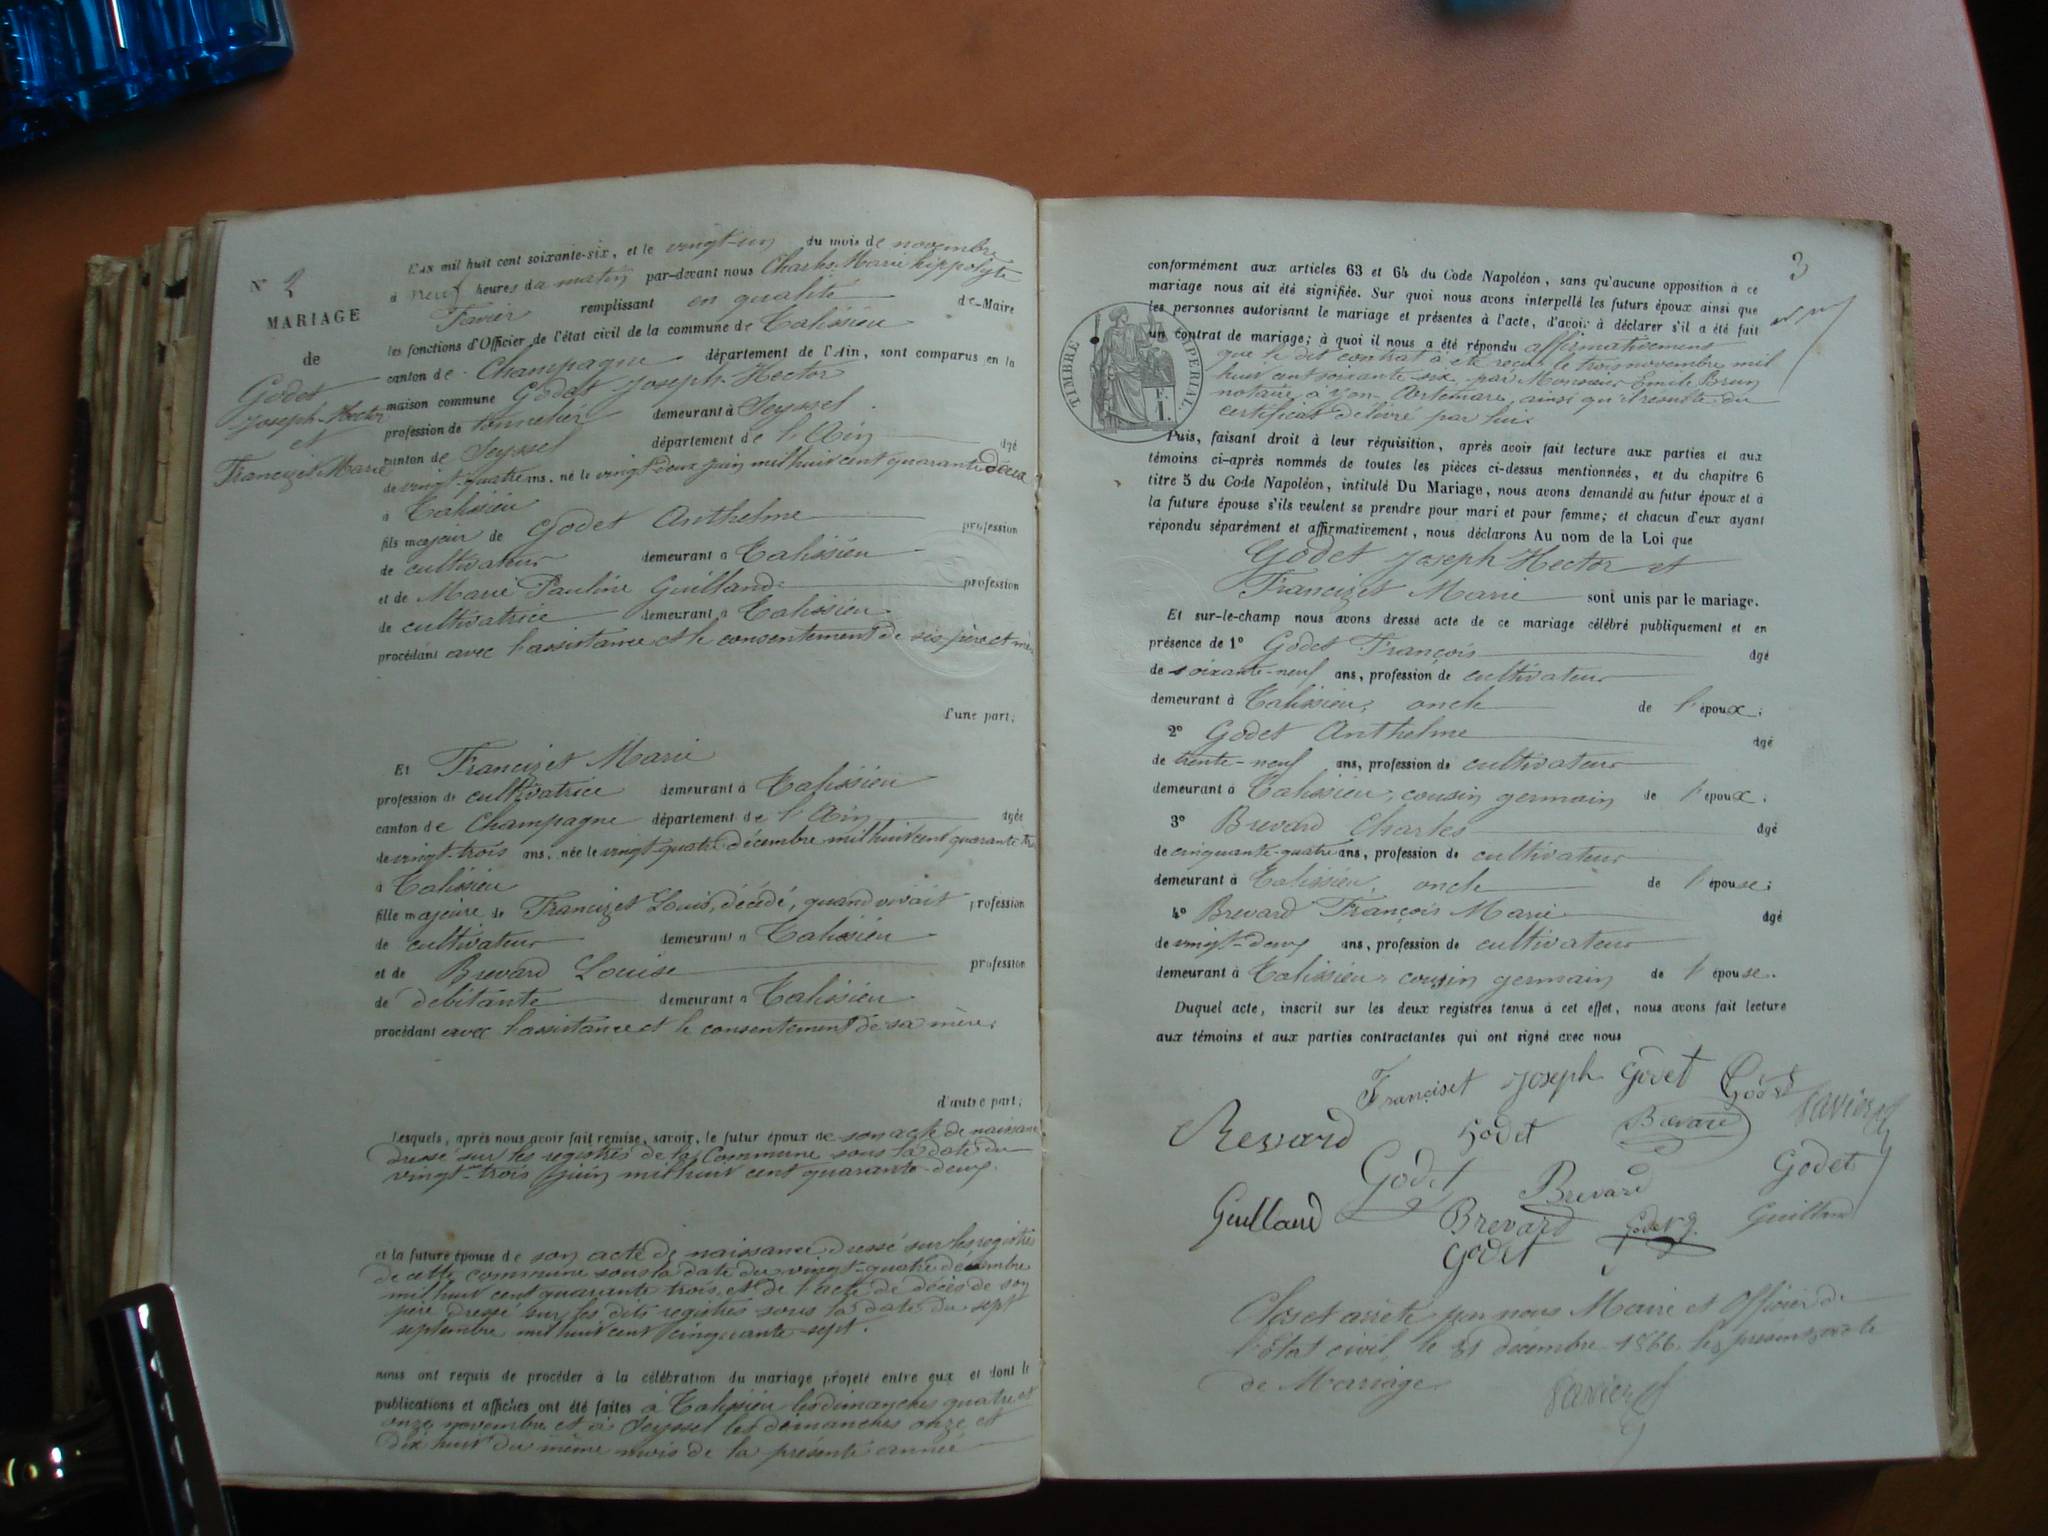 N° 2
MARIAGE
de
Godet
Joseph-Hector
et
Francizet Marie
L'an mil huit cent soixante-six, et le vingt-un du mois de novembre
à neuf heures du matin par-devant nous Charles Marie hippolyte
Favier remplissant en qualité de Maire
les fonctions d'Officier de l'état civil de la commune de Talissieu
canton de Champagne département de l'Ain, sont comparus en la
maison commune Godet Joseph-Hector
profession de tonnelier demeurant à Seyssel
canton de Seyssel département de l'Ain âgé
de vingt-quatre ans, né le vingt-deux juin mil huit cent quarante deux
à Talissieu
fils majeur de Godet Anthelme profession
de cultivateur demeurant à Talissieu
et de Marie Pauline Guilland profession
de cultivatrice demeurant à Talissieu
procédant avec l'assistance et le consentement de ses père et mère
d'une part;
Et Francizet Marie
profession de cultivatrice demeurant à Talissieu
canton de Champagne département de l'Ain âgée
de vingt-trois ans, née le vingt-quatre décembre mil huit cent quarante trois
à Talissieu
fille majeure de Francizet Louis, décédé, quand vivait profession
de cultivateur demeurant à Talissieu
et de Brevard Louise profession
de débitante demeurant à Talissieu
procédant avec l'assistance et le consentement de sa mère,
d'autre part;
Lesquels, après nous avoir fait remise, savoir, le futur époux de son acte de naissance
dressé sur les registres de la Commune sous la date du
vingt-trois juin mil huit cent quarante-deux.
et la future épouse de son acte de naissance dressé sur les registres
de cette commune sous la date du vingt-quatre décembre
mil huit cent quarante trois, et de l'acte de décès de son
père dressé sur les dits registres sous la date du sept
septembre mil huit cent cinquante-sept.
nous ont requis de procéder à la célébration du mariage projeté entre eux et dont les
publications et affiches ont été faites à Talissieu les dimanches quatre et
onze novembre et à Seyssel les dimanches onze et
dix huit du même mois de la présente année
3
conformément aux articles 63 et 64 du Code Napoléon, sans qu'aucune opposition à ce
mariage nous ait été signifiée. Sur quoi nous avons interpellé les futurs époux ainsi que
les personnes autorisant le mariage et présentes à l'acte, d'avoir à déclarer s'il a été fait
un contrat de mariage; à quoi il nous a été répondu affirmativement
que le dit contrat a été reçu le trois novembre mil
huit cent soixante-six par Monsieur Emile Brun
notaire à Yon-Artemare, ainsi qu'il résulte du
certificat délivré par lui.
TIMBRE IMPERIAL
Puis, faisant droit à leur réquisition, après avoir fait lecture aux parties et aux
témoins ci-après nommés de toutes les pièces ci-dessus mentionnées, et du chapitre 6
titre 5 du Code Napoléon, intitulé Du Mariage, nous avons demandé au futur époux et à
la future épouse s'ils veulent se prendre pour mari et pour femme; et chacun d'eux ayant
répondu séparément et affirmativement, nous déclarons Au nom de la Loi que
Godet Joseph Hector et
Francizet Marie sont unis par le mariage.
Et sur-le-champ nous avons dressé acte de ce mariage célébré publiquement et en
présence de 1° Godet François âgé
de soixante-neuf ans, profession de cultivateur
demeurant à Talissieu, oncle de l'époux;
2° Godet Anthelme âgé
de trente-neuf ans, profession de cultivateur
demeurant à Talissieu, cousin germain de l'époux;
3° Brevard Charles âgé
de cinquante-quatre ans, profession de cultivateur
demeurant à Talissieu, oncle de l'épouse;
4° Brevard François Marie âgé
de vingt-deux ans, profession de cultivateur
demeurant à Talissieu, cousin germain de l'épouse.
Duquel acte, inscrit sur les deux registres tenus à cet effet, nous avons fait lecture
aux témoins et aux parties contractantes qui ont signé avec nous
Franciset Joseph Godet Godet Favier
Brevard Godet Brevard
Godet Brevard Godet
Guilland Brevard Godet Guilland
Godet
Clos et arrêté par nous Maire et Officier de
l'Etat civil, le 31 décembre 1866 les présents acte
de Mariage
Favier